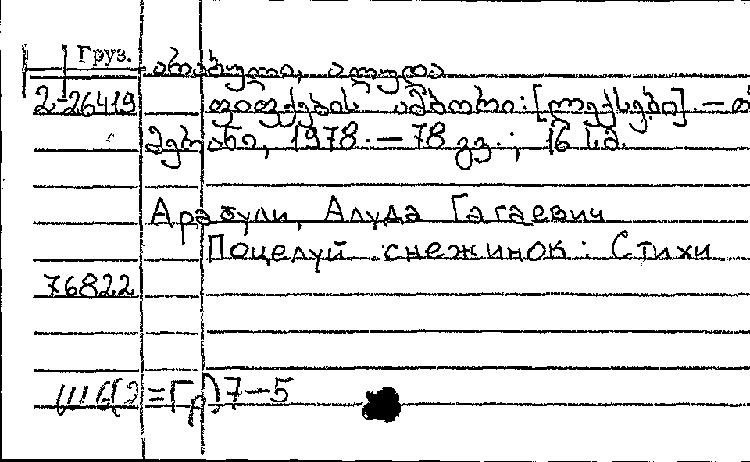 Груз.
არაბული, ალუდა
2-26419 ფიფქების ამბორი: [ლექსები]. — თ
ბილისი, 1978. — 78 გვ.; 16 სმ.
Арабули, Алуда Гагаевич
Поцелуй снежинок: Стихи
76822
Ш6(2=Гр)7-5